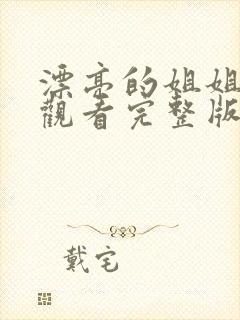 漂亮的姐姐
觀看完整版
戴宅